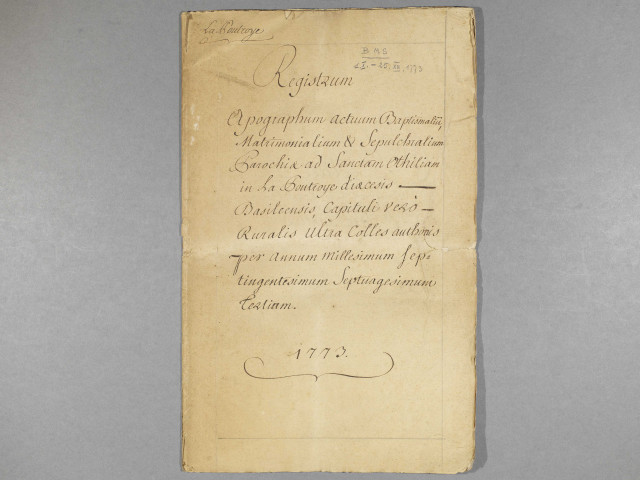 La Poutroye
B M S
2 I. - 25 XII. 1773
Registrum
Apographum actuum Baptismaliū,
Matrimonialium & Sepulchralium
Parochiæ ad Sanctam Othiliam
in La Poutroye diœcesis —
Basileensis, Capituli verò —
Ruralis Ultra Colles authonis
per annum Millesimum sep-
tingentesimum Septuagesimum
tertium.
1773.